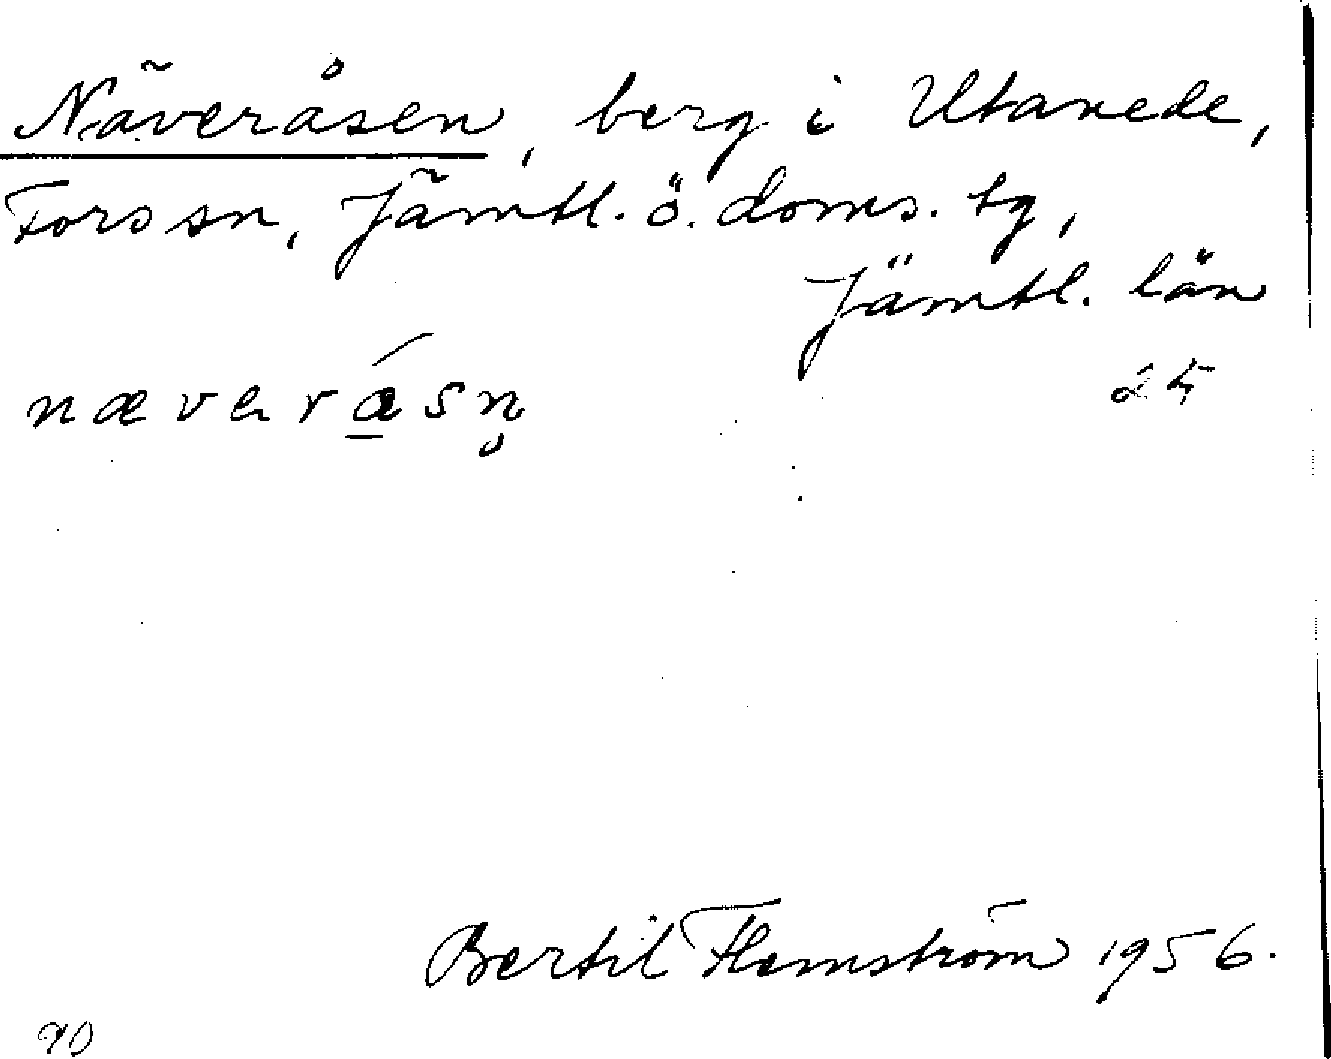 Näveråsen, berg i Utanede,
Fors sn, Jämtl. ö. doms. tg,
Jämtl. län
næveråsn̥
Bertil Flemström 1956.
90